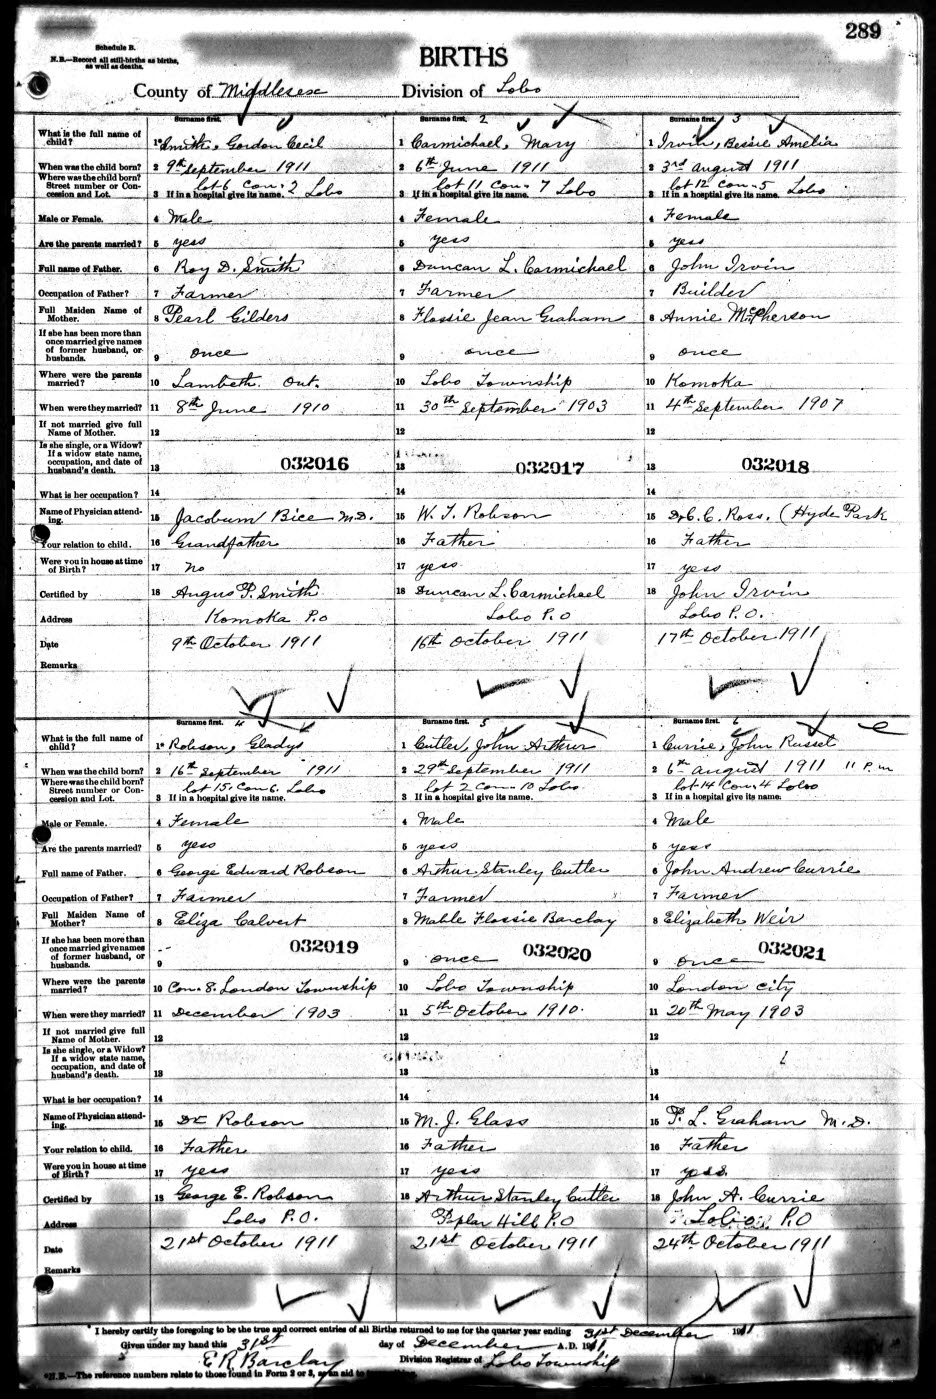 289
Schedule B.
N.B.—Record all still-births as births,
as well as deaths.
BIRTHS
County of Middlesex Division of Lobo
Surname first. Surname first. 2 Surname first. 3
What is the full name of child? 1* Smith, Gordon Cecil 1 Carmichael, Mary 1 Irvin, Bessie Amelia
When was the child born? 2 9th September 1911 2 6th June 1911 2 3rd August 1911
Where was the child born? Street number or Concession and Lot. lot 6 Con. 2 Lobo lot 11 Con. 7 Lobo lot 12 con. 5 Lobo
3 If in a hospital give its name. 3 If in a hospital give its name. 3 If in a hospital give its name.
Male or Female. 4 Male 4 Female 4 Female
Are the parents married? 5 yess 5 yess 5 yess
Full name of Father. 6 Roy D. Smith 6 Duncan L. Carmichael 6 John Irvin
Occupation of Father? 7 Farmer 7 Farmer 7 Builder
Full Maiden Name of Mother. 8 Pearl Gilders 8 Flossie Jean Graham 8 Annie McPherson
If she has been more than once married give names of former husband, or husbands. 9 once 9 once 9 once
Where were the parents married? 10 Lambeth. Ont. 10 Lobo Township 10 Komoka
When were they married? 11 8th June 1910 11 30th September 1903 11 4th September 1907
If not married give full Name of Mother. 12 12 12
Is she single, or a Widow? If a widow state name, occupation, and date of husband's death. 13 032016 13 032017 13 032018
What is her occupation? 14 14 14
Name of Physician attending. 15 Bice M.D. 15 W. T. Robson 15 Dr C. C. Ross. (Hyde Park
Your relation to child. 16 Grandfather 16 Father 16 Father
Were you in house at time of Birth? 17 no 17 yess 17 yess
Certified by 18 Angus P. Smith 18 Duncan L. Carmichael 18 John Irvin
Address Komoka P.O Lobo P.O Lobo P.O.
Date 9th October 1911 16th October 1911 17th October 1911
Remarks
Surname first. 4 Surname first. 5 Surname first. 6
What is the full name of child? 1* Robson, Gladys 1 Cutler, John Arthur 1 Currie, John Russel
When was the child born? 2 16th September 1911 2 29th September 1911 2 6th August 1911 11 P.m
Where was the child born? Street number or Concession and Lot. lot 15, Con 6. Lobo lot 2 Con. 10 Lobo lot 14 Con. 4 Lobo
3 If in a hospital give its name. 3 If in a hospital give its name. 3 If in a hospital give its name.
Male or Female. 4 Female 4 Male 4 Male
Are the parents married? 5 yess 5 yess 5 yess
Full name of Father. 6 George Edward Robson 6 Arthur Stanley Cutler 6 John Andrew Currie
Occupation of Father? 7 Farmer 7 Farmer 7 Farmer
Full Maiden Name of Mother? 8 Eliza Calvert 8 Mable Flossie Barclay 8 Elizabeth Weir
If she has been more than once married give names of former husband, or husbands. 9 032019 9 once 032020 9 once 032021
Where were the parents married? 10 Con. 8. London Township 10 Lobo Township 10 London City
When were they married? 11 December 1903 11 5th October 1910. 11 20th May 1903
If not married give full Name of Mother. 12 12 12
Is she single, or a Widow? If a widow state name, occupation, and date of husband's death. 13 13 13
What is her occupation? 14 14 14
Name of Physician attending. 15 Dr Robson 15 M. J. Glass 15 P. L. Graham M.D.
Your relation to child. 16 Father 16 Father 16 Father
Were you in house at time of Birth? 17 yess 17 yess 17 yess.
Certified by 18 George E. Robson 18 Arthur Stanley Cutler 18 John A. Currie
Address Lobo P.O. Poplar Hill P.O Lobo P.O
Date 21st October 1911 21st October 1911 24th October 1911
Remarks
* I hereby certify the foregoing to be the true and correct entries of all Births returned to me for the quarter year ending 31st December 1911
Given under my hand this 31st day of December A.D. 1911
E R Barclay Division Registrar of Lobo Township
*N.B.—The reference numbers relate to those found in Form 2 or 3, as an aid to